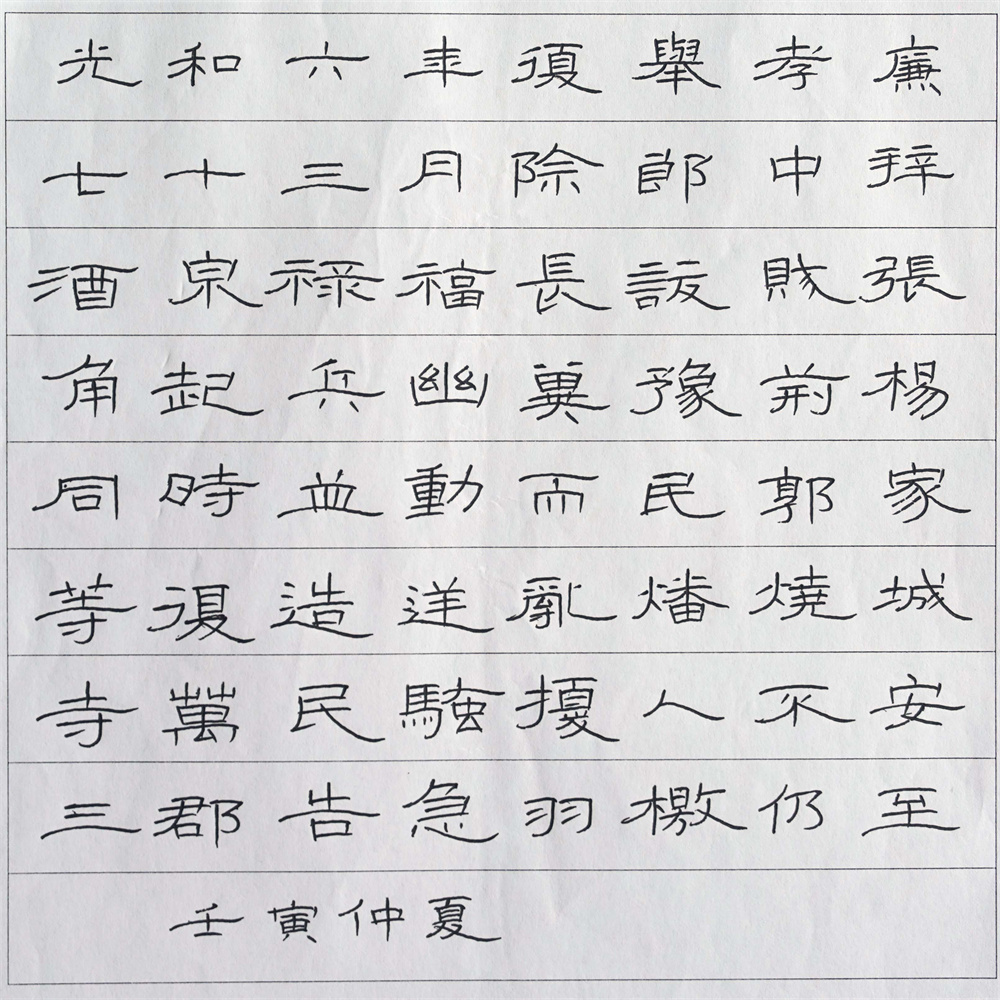 光和六年復舉孝廉
七十三月除郎中拜
酒泉祿福長訞賊張
角起兵幽冀豫荊楊
同時並動而民郭家
等復造逆亂燔燒城
寺萬民騷擾人不安
三郡告急羽檄仍至
壬寅仲夏